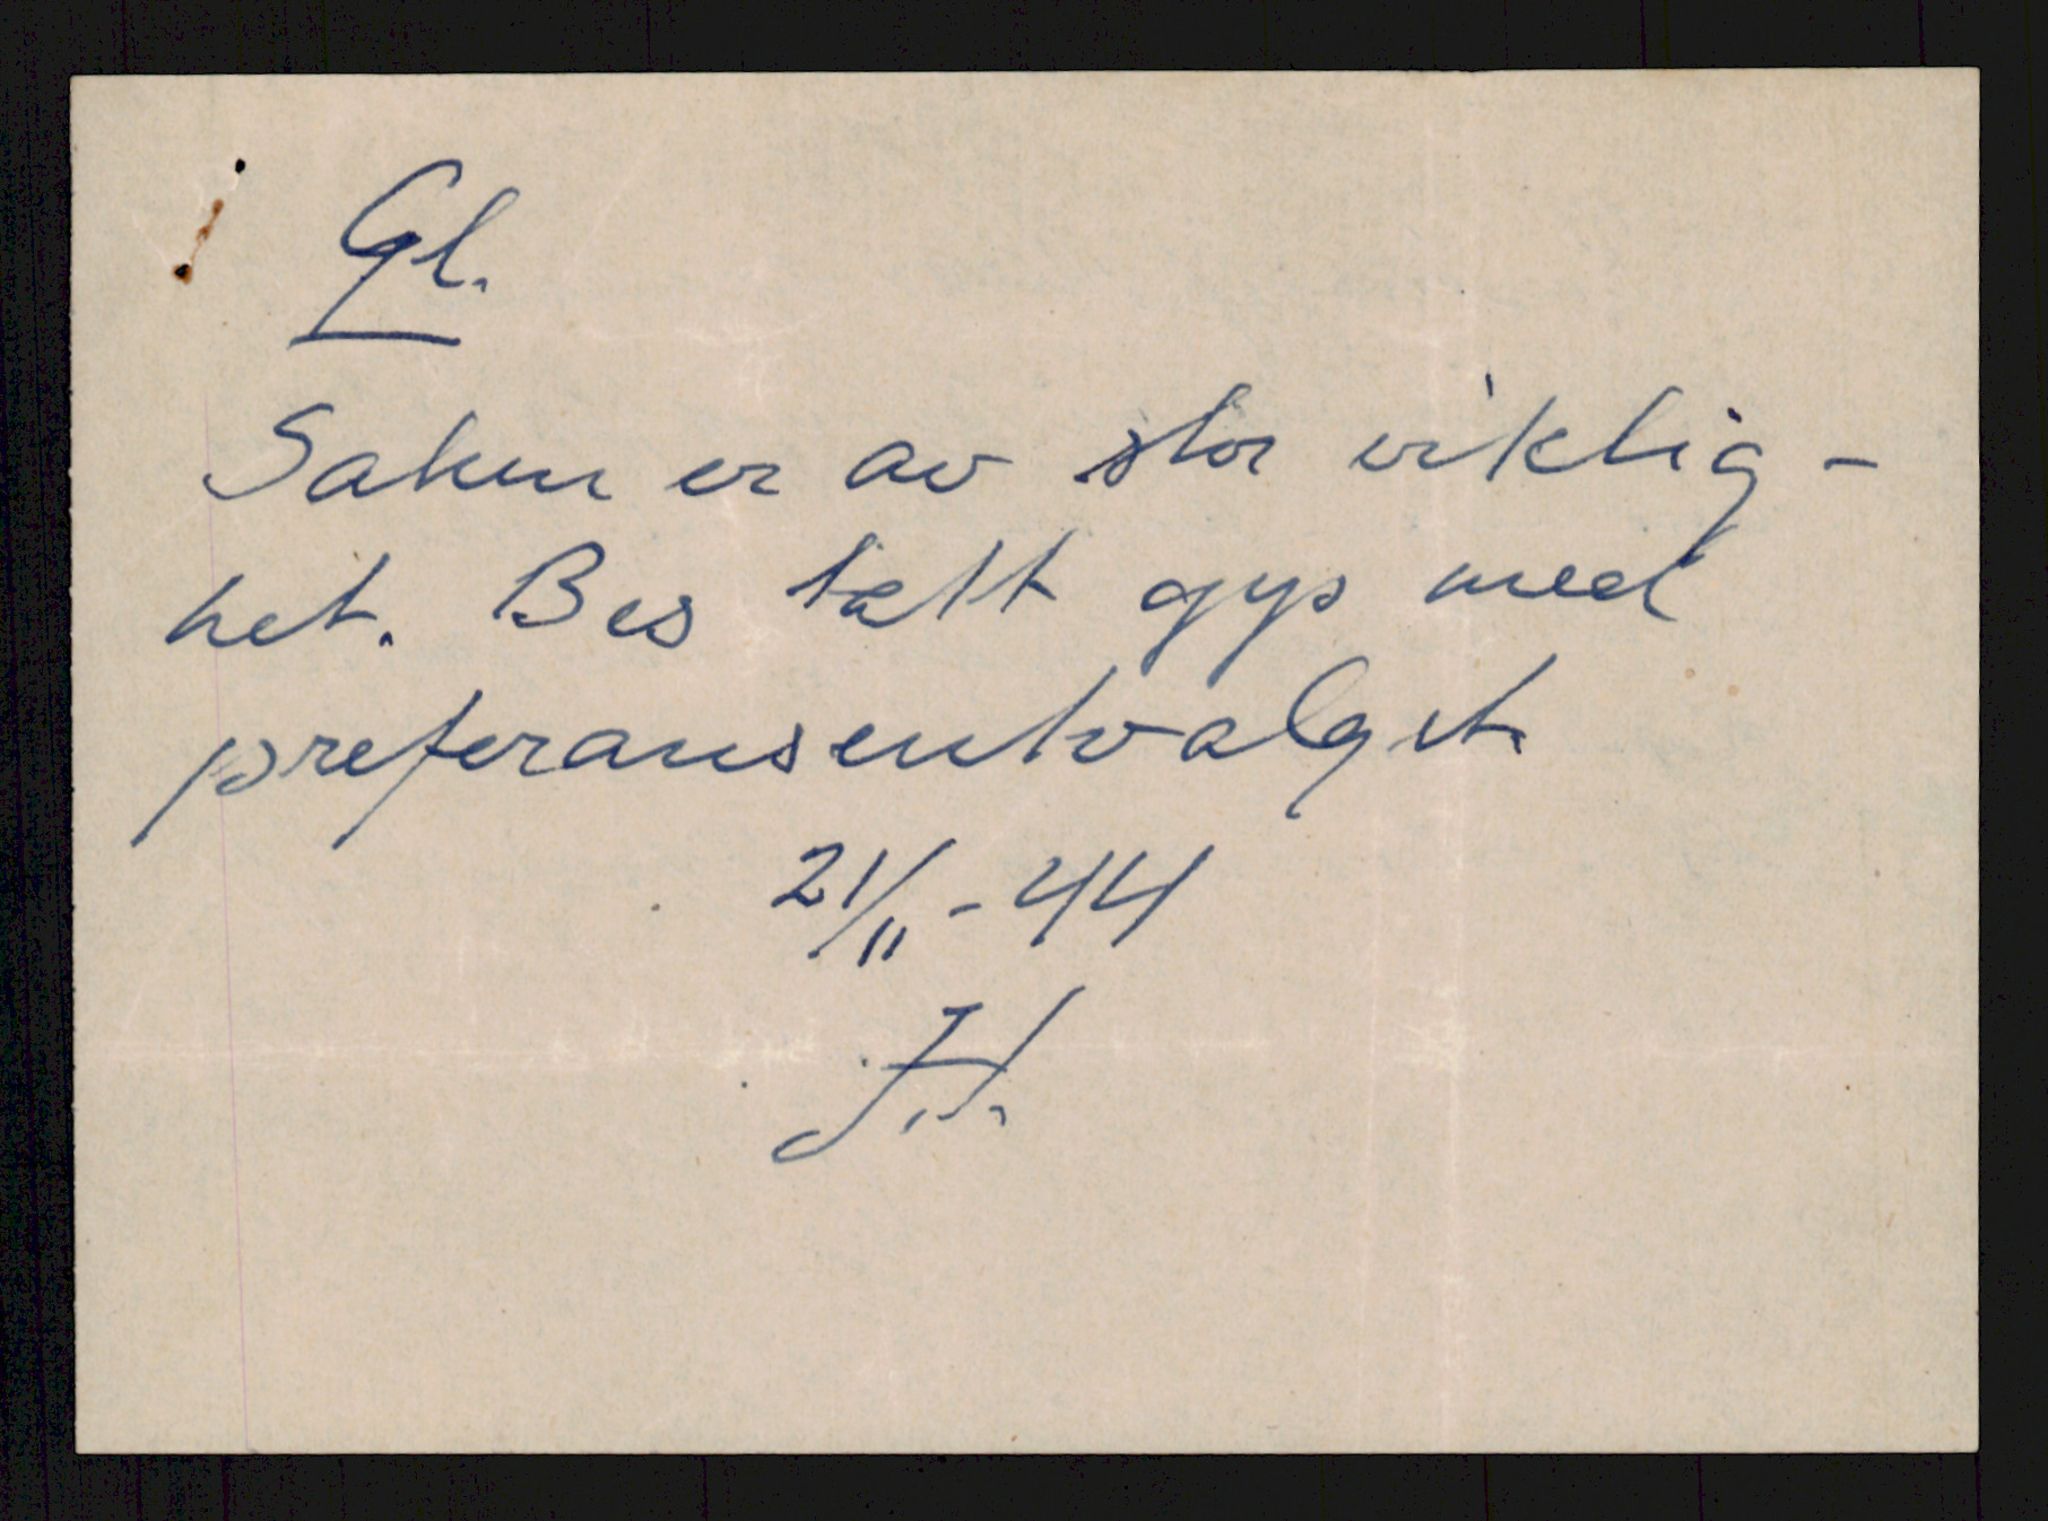 Gl.
Saken er av stor viktig-
het. Bes tatt opp med
preferanseutvalget.
21/11-44